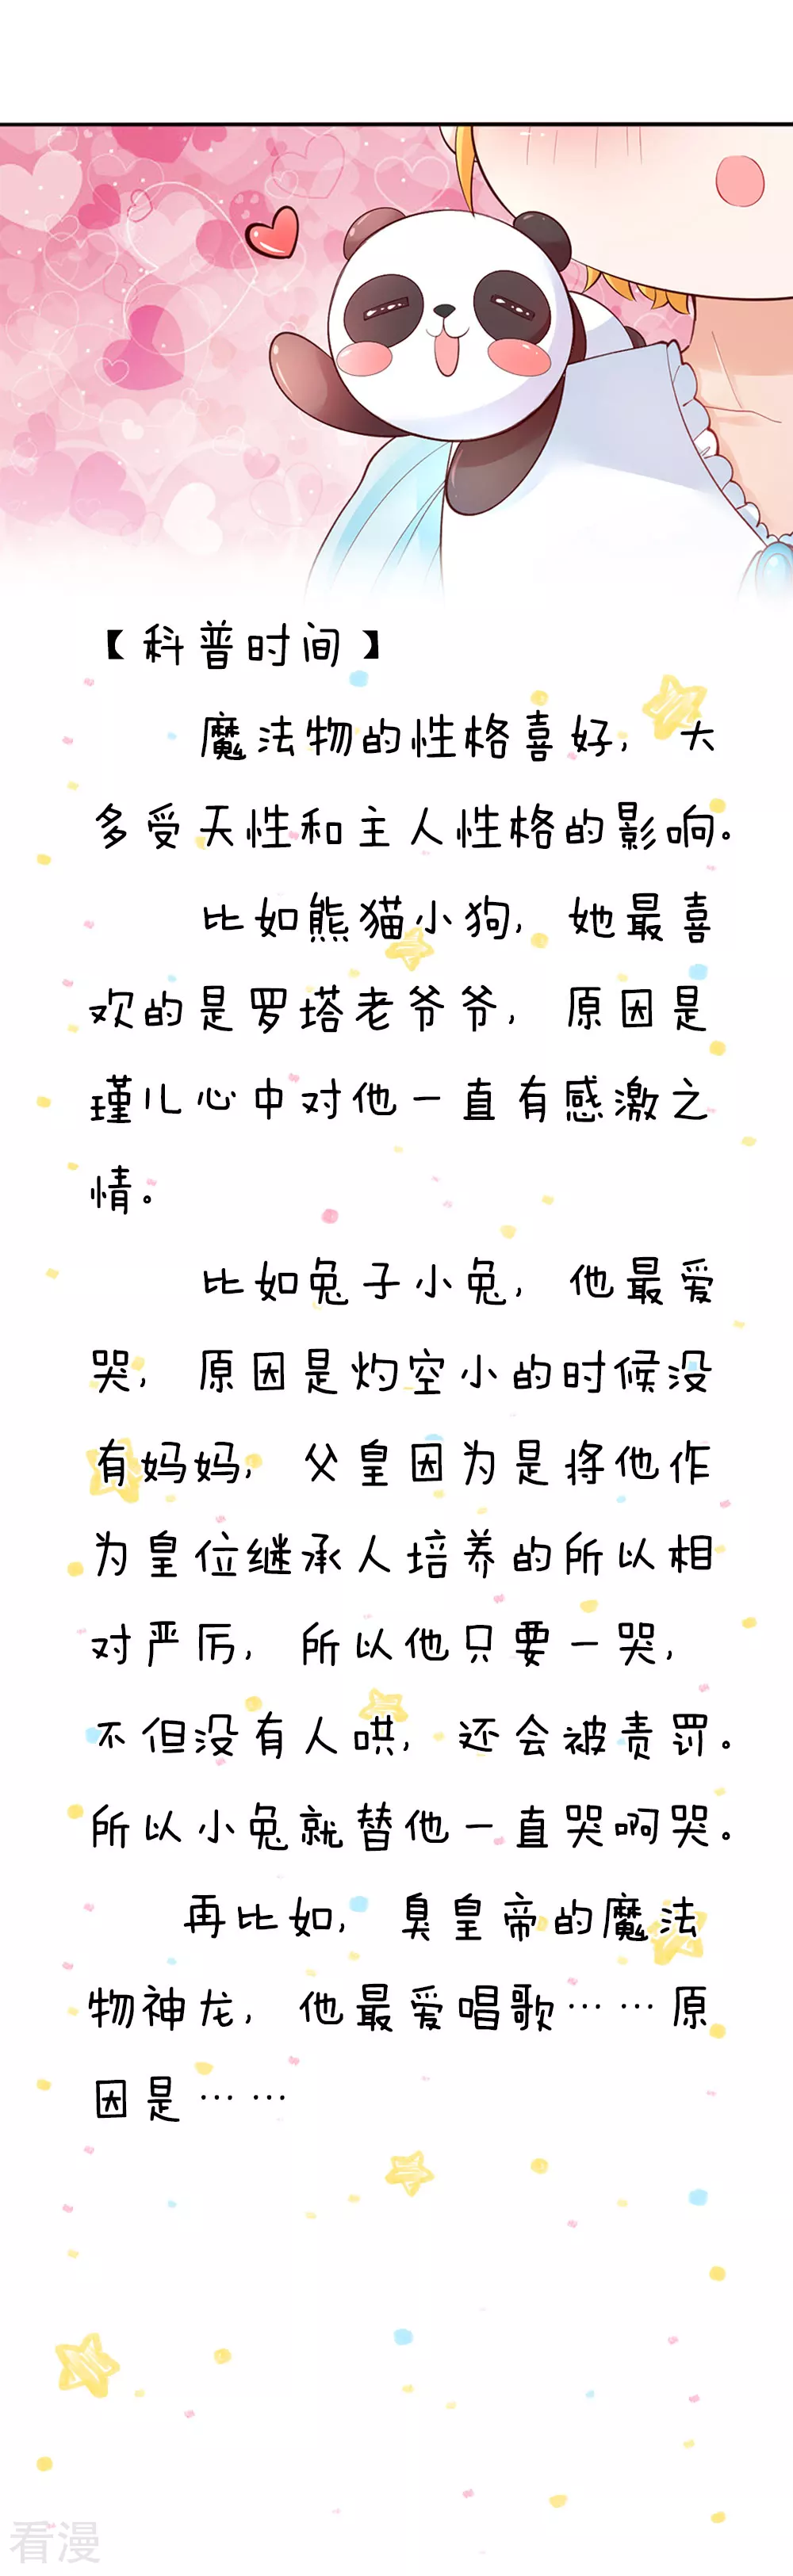 【科普时间】
魔法物的性格喜好，大
多受天性和主人性格的影响。
比如熊猫小狗，她最喜
欢的是罗塔老爷爷，原因是
瑾儿心中对他一直有感激之
情。
比如兔子小兔，他最爱
哭，原因是灼空小的时候没
有妈妈，父皇因为是将他作
为皇位继承人培养的所以相
对严厉，所以他只要一哭，
不但没有人哄，还会被责罚。
所以小兔就替他一直哭啊哭。
再比如，臭皇帝的魔法
物神龙，他最爱唱歌……原
因是……
看漫